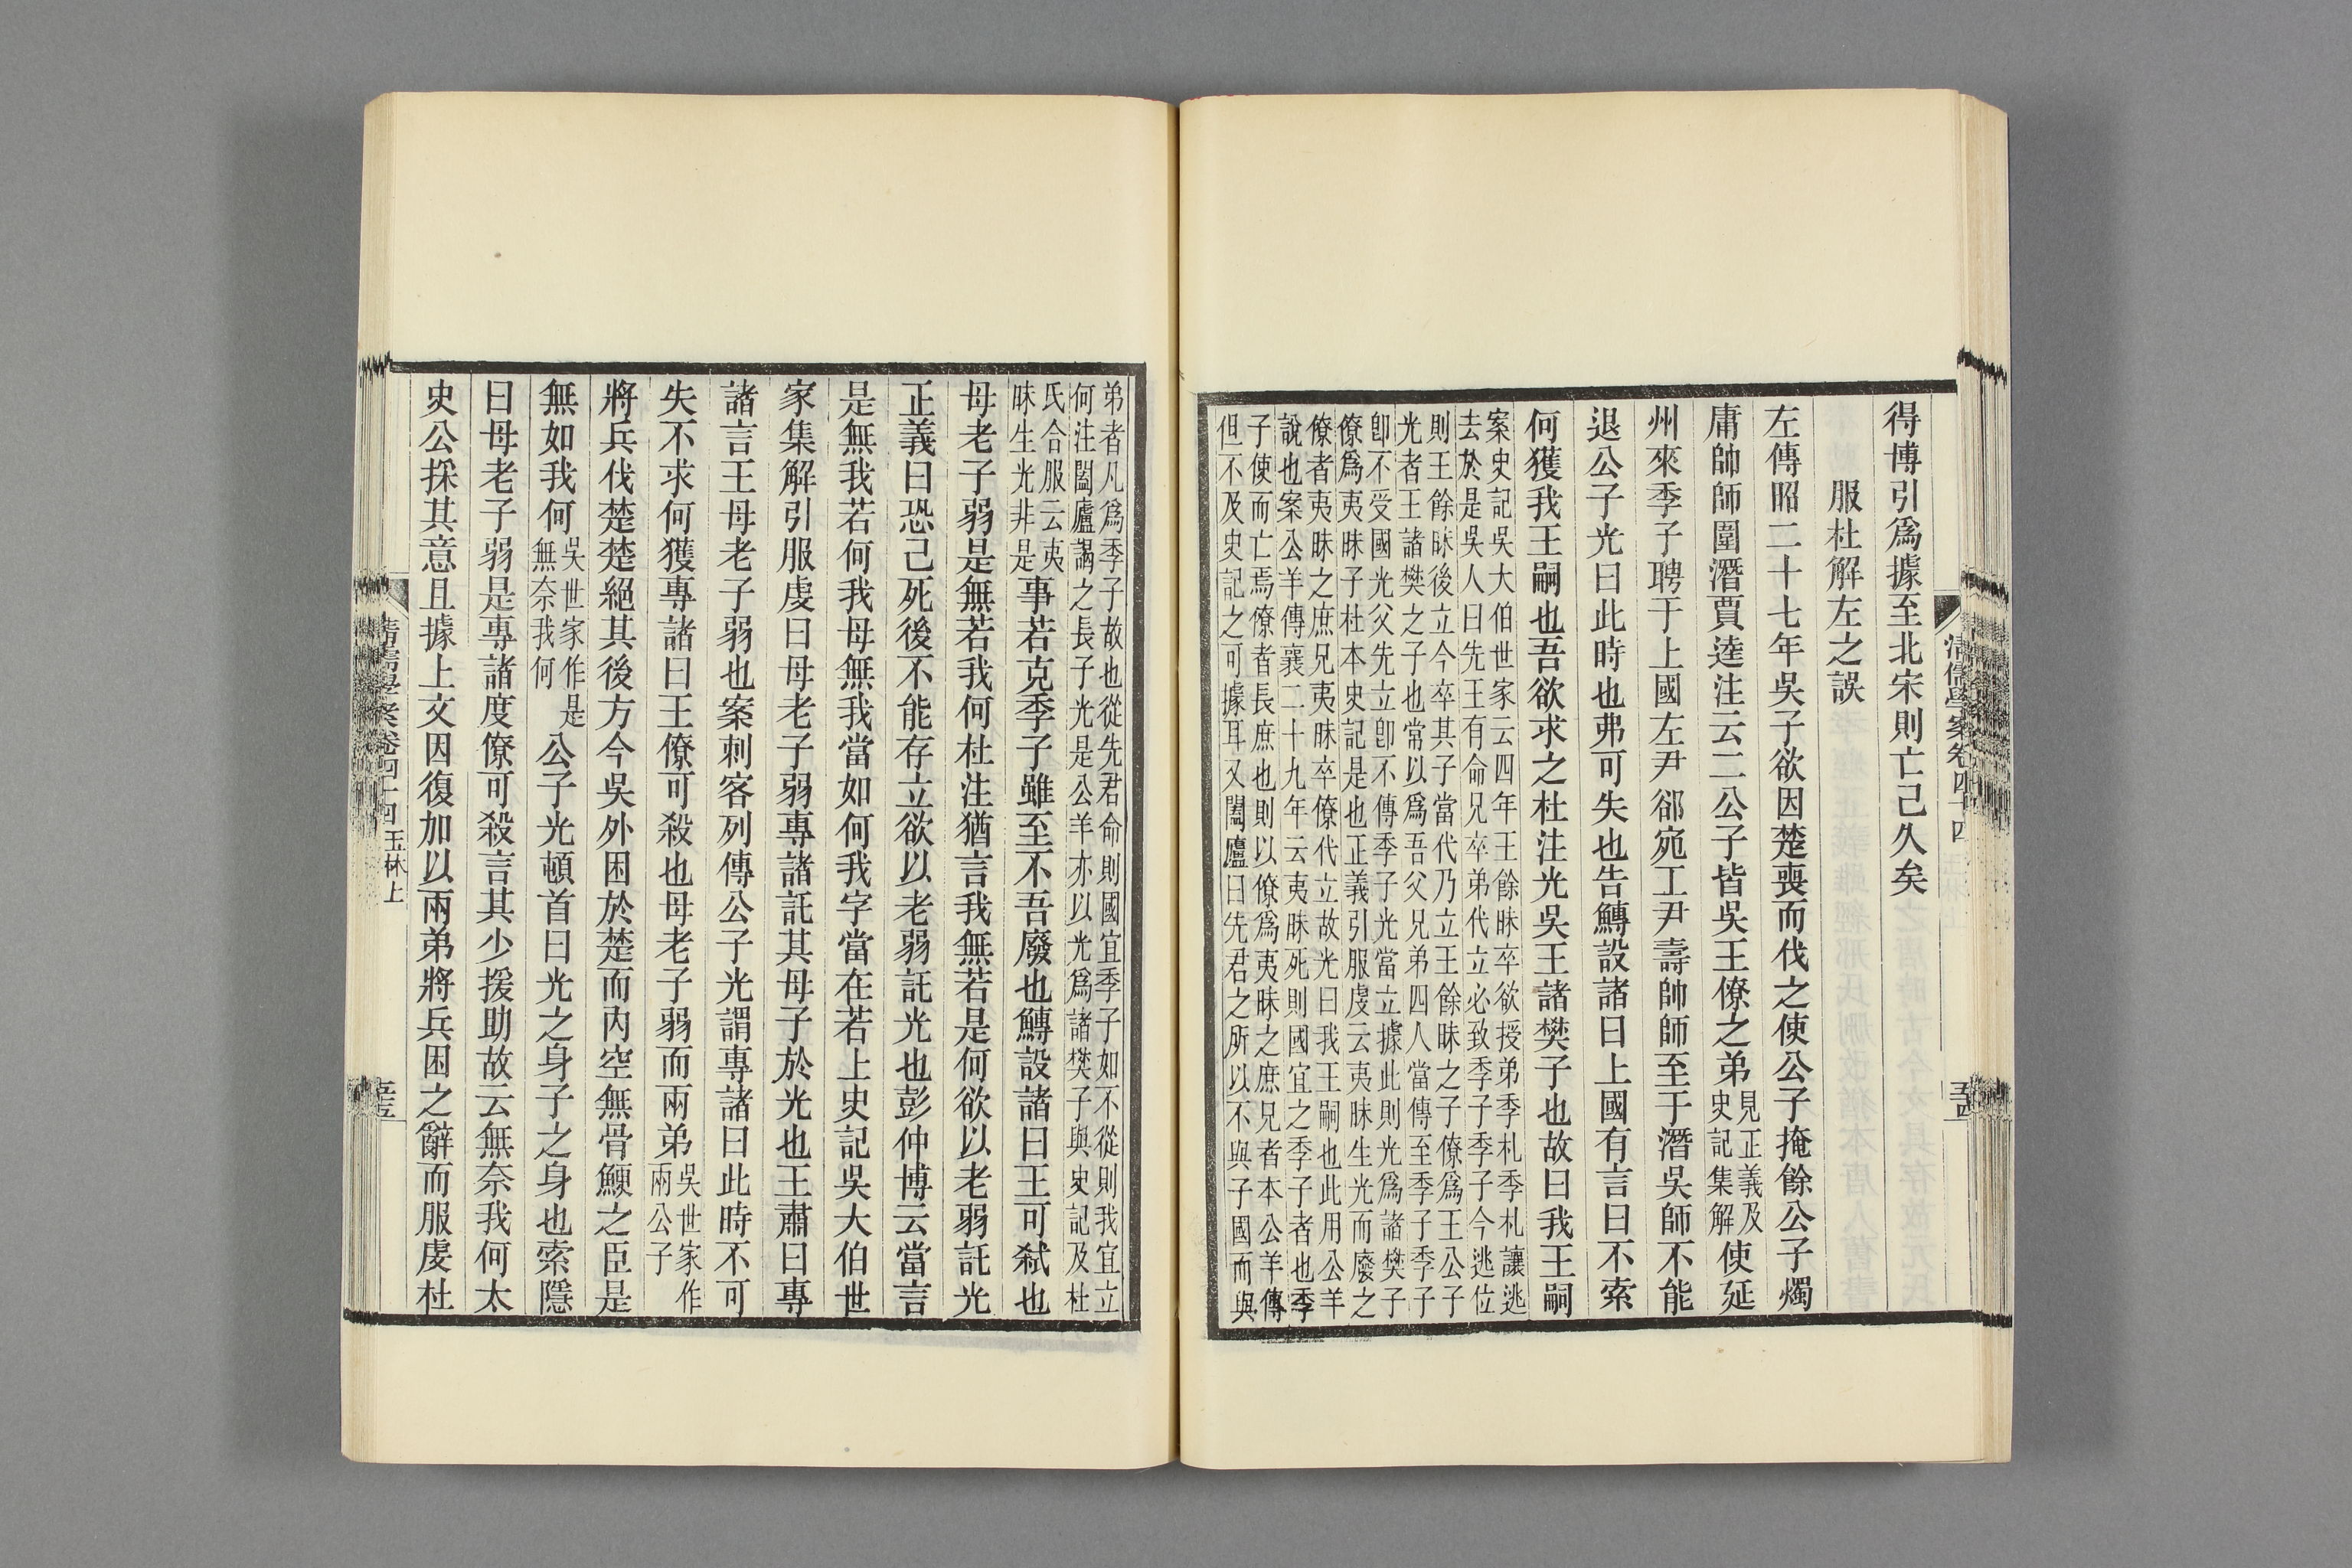 得博引爲據至北宋則亡已久矣
服杜解左之誤
左傳昭二十七年吳子欲因楚喪而伐之使公子掩餘公子燭
庸帥師圍潛賈逵注云二公子皆吳王僚之弟見正義及史記集解使延
州來季子聘于上國左尹郤宛工尹壽帥師至于潛吳師不能
退公子光曰此時也弗可失也告鱄設諸曰上國有言曰不索
何獲我王嗣也吾欲求之杜注光吳王諸樊子也故曰我王嗣
案史記吳大伯世家云四年王餘眛卒欲授弟季札季札讓逃
去於是吳人曰先王有命兄卒弟代立必致季子季子今逃位
則王餘眛後立今卒其子當代乃立王餘眛之子僚爲王公子
光者王諸樊之子也常以爲吾父兄弟四人當傳至季子季子
卽不受國光父先立卽不傳季子光當立據此則光爲諸樊子
僚爲夷眛子杜本史記是也正義引服虔云夷眛生光而廢之
僚者夷眛之庶兄夷眛卒僚代立故光曰我王嗣也此用公羊
說也案公羊傳襄二十九年云夷眛死則國宜之季子者也季
子使而亡焉僚者長庶也則以僚爲夷眛之庶兄者本公羊傳
但不及史記之可據耳又闔廬曰先君之所以不與子國而與
清儒學案卷四十四 玉林上
五四
弟者凡爲季子故也從先君命則國宜季子如不從則我宜立
何注闔廬謁之長子光是公羊亦以光爲諸樊子與史記及杜
氏合服云夷
眛生光非是
事若克季子雖至不吾廢也鱄設諸曰王可弒也
母老子弱是無若我何杜注猶言我無若是何欲以老弱託光
正義曰恐己死後不能存立欲以老弱託光也彭仲博云當言
是無我若何我母無我當如何我字當在若上史記吳大伯世
家集解引服虔曰母老子弱專諸託其母子於光也王肅曰專
諸言王母老子弱也案刺客列傳公子光謂專諸曰此時不可
失不求何獲專諸曰王僚可殺也母老子弱而兩弟吳世家作兩公子
將兵伐楚楚絕其後方今吳外困於楚而內空無骨鯁之臣是
無如我何吳世家作是無奈我何公子光頓首曰光之身子之身也索隱
曰母老子弱是專諸度僚可殺言其少援助故云無奈我何太
史公採其意且據上文因復加以兩弟將兵困之辭而服虔杜
清儒學案卷四十四 玉林上
五五